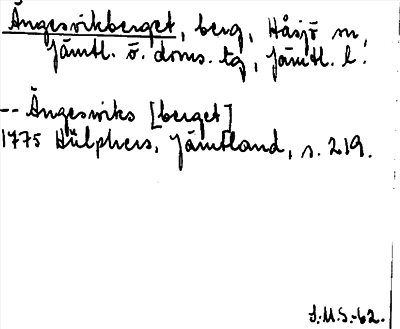 Ängesvikberget, berg, Håsjö sn,
Jämtl. ö. doms. tg, Jämtl. l.
-- Ängesviks [berget]
1775 Hülphers, Jämtland, s. 219.
S.M.S.-62.